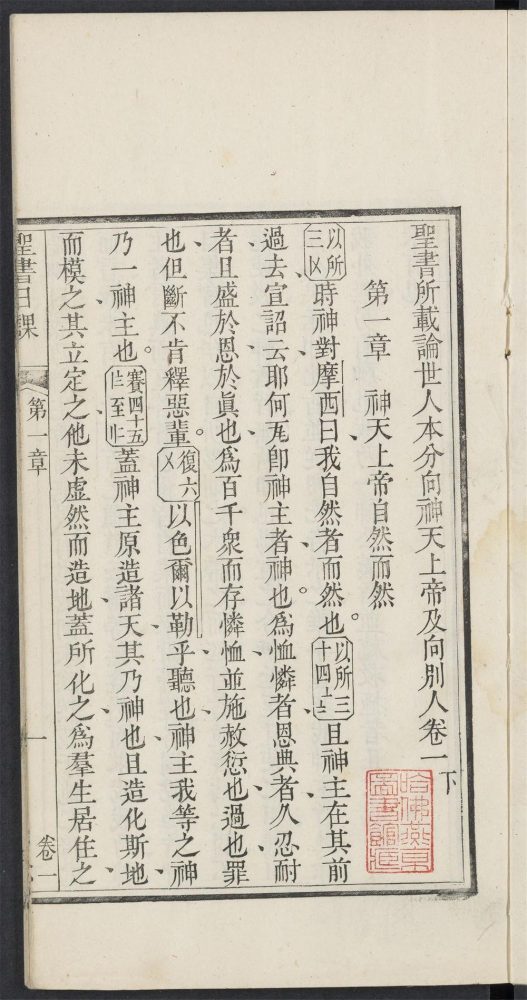 聖書所載論世人本分向神天上帝及向別人卷一下
第一章　神天上帝自然而然
以所三〤時神對摩西曰我自然者而然也。以所三十四上〦且神主在其前
過去宣詔云耶何即神主者神也。為恤憐者恩典者久忍耐
者且盛於恩於眞也為百千衆而存憐恤並施赦愆也過也罪
也但斷不肯釋惡輩。復六〤以色爾以勒乎聽也神主我等之神
乃一神主也。賽四十五至蓋神主原造諸天其乃神也且造化斯地
而模之其立定之他未虛然而造地蓋所化之為羣生居住之
聖書日課
第一章
一
卷一
哈佛燕京圖書館